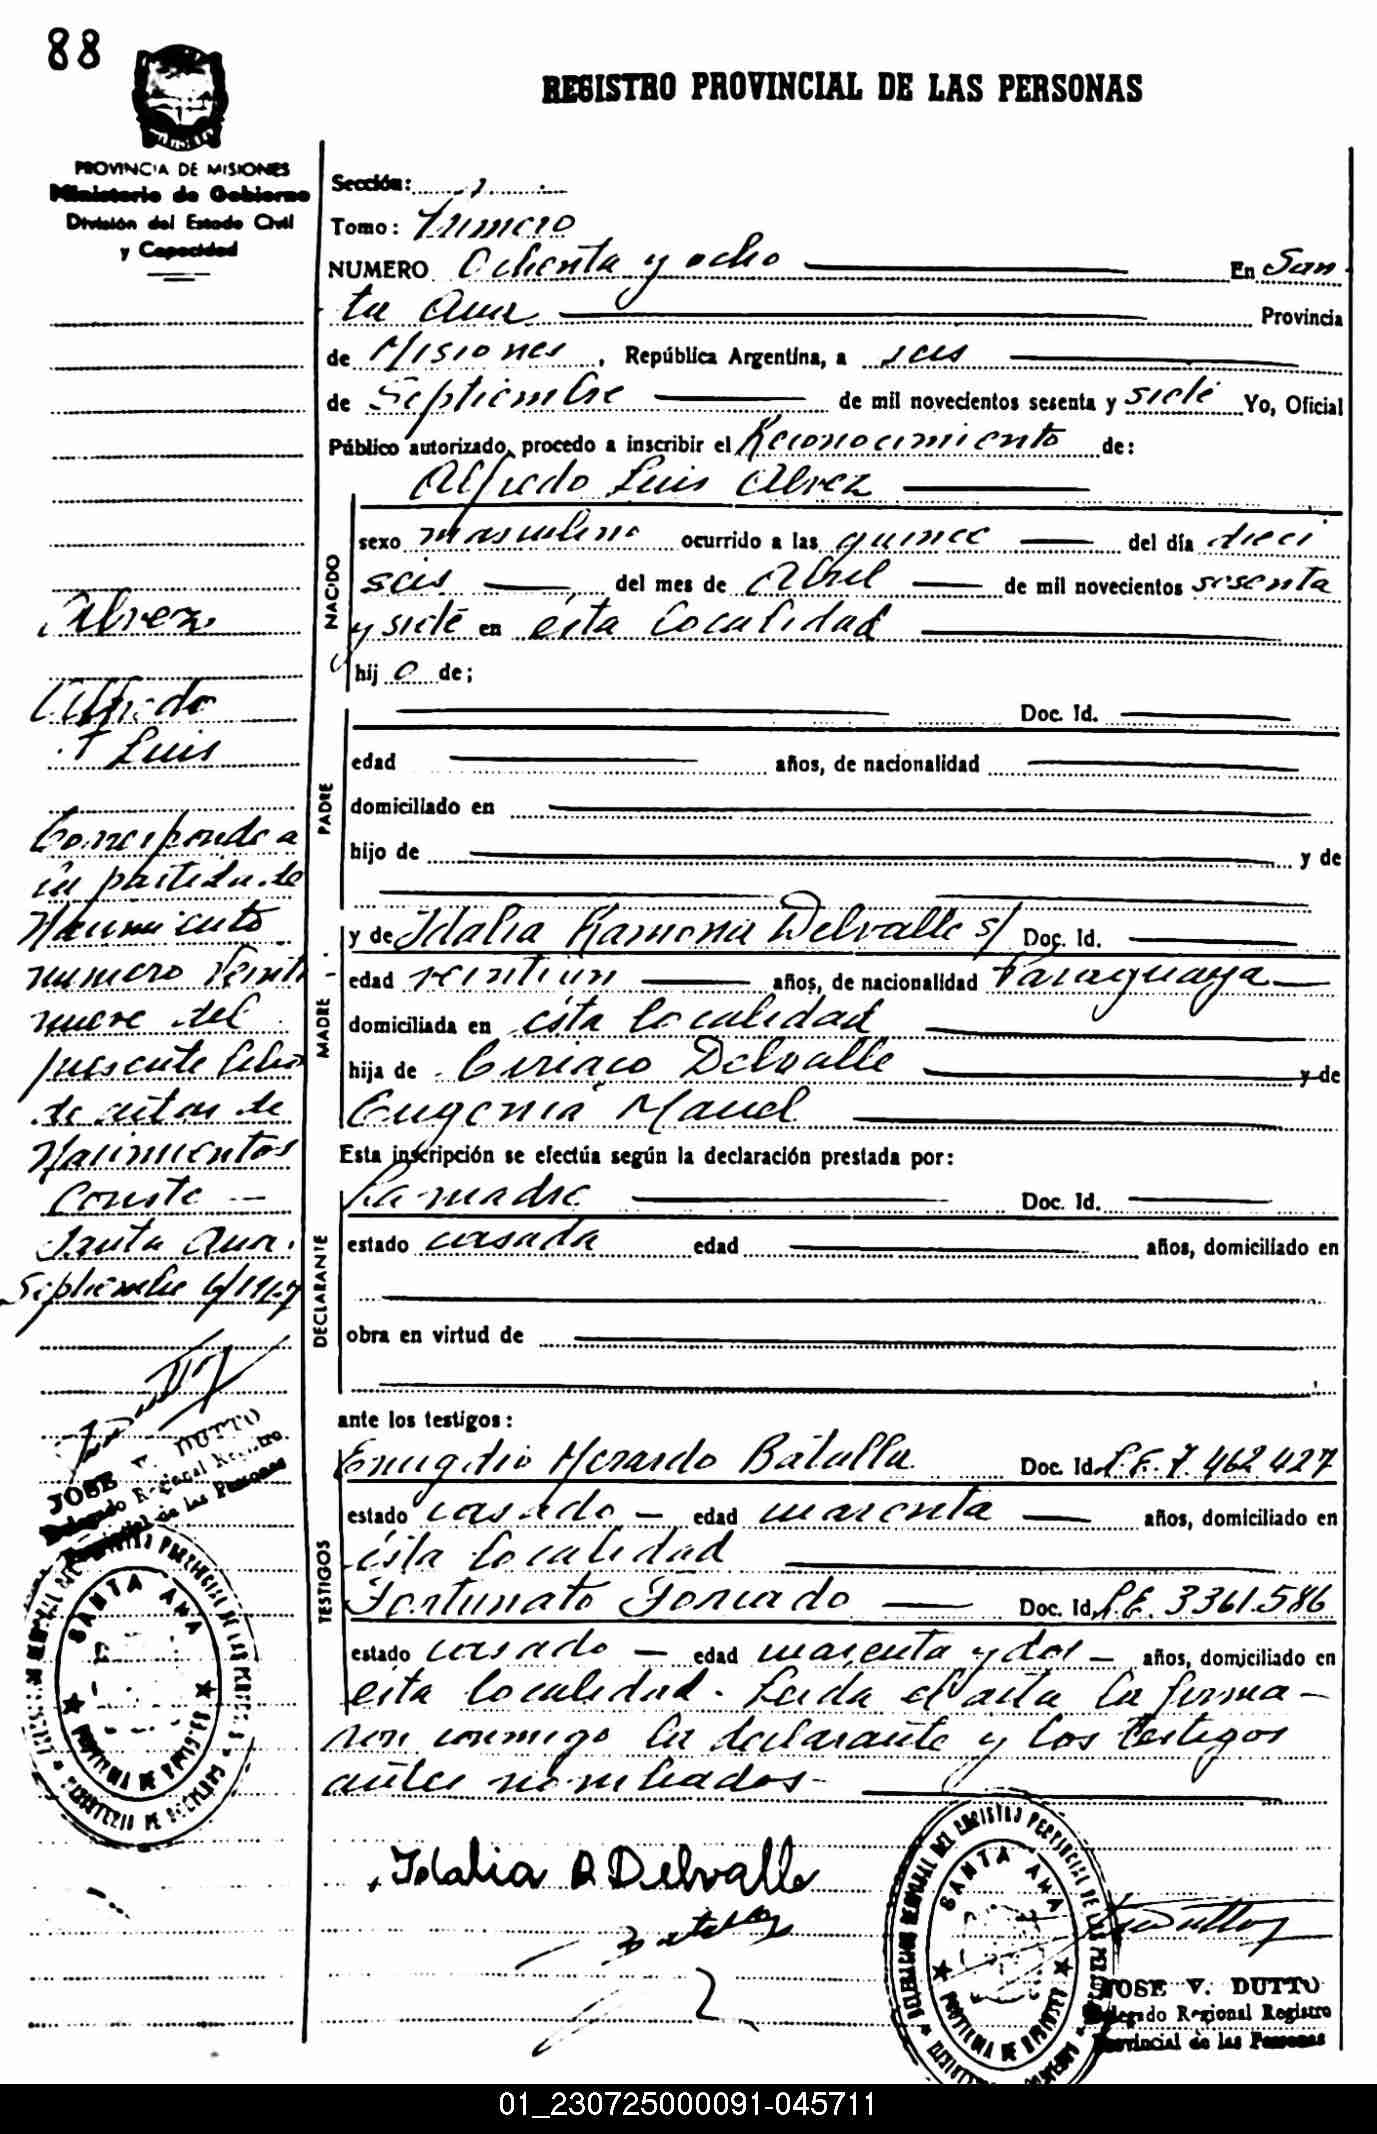 88
REGISTRO PROVINCIAL DE LAS PERSONAS
PROVINCIA DE MISIONES
Ministerio de Gobierno
División del Estado Civil
y Capacidad
Sección: 1
Tomo: Primero
NUMERO Ochenta y ocho En San
ta Ana Provincia
de Misiones, República Argentina, a seis
de Septiembre de mil novecientos sesenta y siete Yo, Oficial
Público autorizado, procedo a inscribir el Reconocimiento de:
Alfredo Luis Alvez
NACIDO
sexo masculino ocurrido a las quince del día dieci
seis del mes de Abril de mil novecientos sesenta
y siete en ésta localidad
hijo de;
PADRE
Doc. Id.
edad años, de nacionalidad
domiciliado en
hijo de y de
MADRE
y de Idalia Ramona Delvalle s/ Doc. Id.
edad veintiun años, de nacionalidad Paraguaya
domiciliada en ésta localidad
hija de Ciriaco Delvalle y de
Eugenia
Esta inscripción se efectúa según la declaración prestada por:
DECLARANTE
La madre Doc. Id.
estado casada edad años, domiciliado en
obra en virtud de
ante los testigos:
TESTIGOS
Emigdio Batalla Doc. Id. L.E. 7.462.427
estado casado edad cuarenta años, domiciliado en
ésta localidad
Fortunato Doc. Id. L.E. 3361.586
estado casado edad cuarenta y dos años, domiciliado en
esta localidad. Leida el acta la firma-
ron conmigo la declarante y los testigos
antes nombrados-
Idalia R Delvalle
JOSE V. DUTTO
Delegado Regional Registro
Provincial de las Personas
DELEGACION REGIONAL DEL REGISTRO PROVINCIAL DE LAS PERSONAS
SANTA ANA
PROVINCIA DE MISIONES
Alvez
Alfredo
Luis
Corresponde a
la partida de
Nacimiento
numero Veinti
nueve del
presente libro
de actas de
Nacimientos
Conste -
Santa Ana.
Septiembre 6/1967
JOSE V. DUTTO
Delegado Regional Registro
Provincial de las Personas
SANTA ANA
PROVINCIA DE MISIONES
01_230725000091-045711